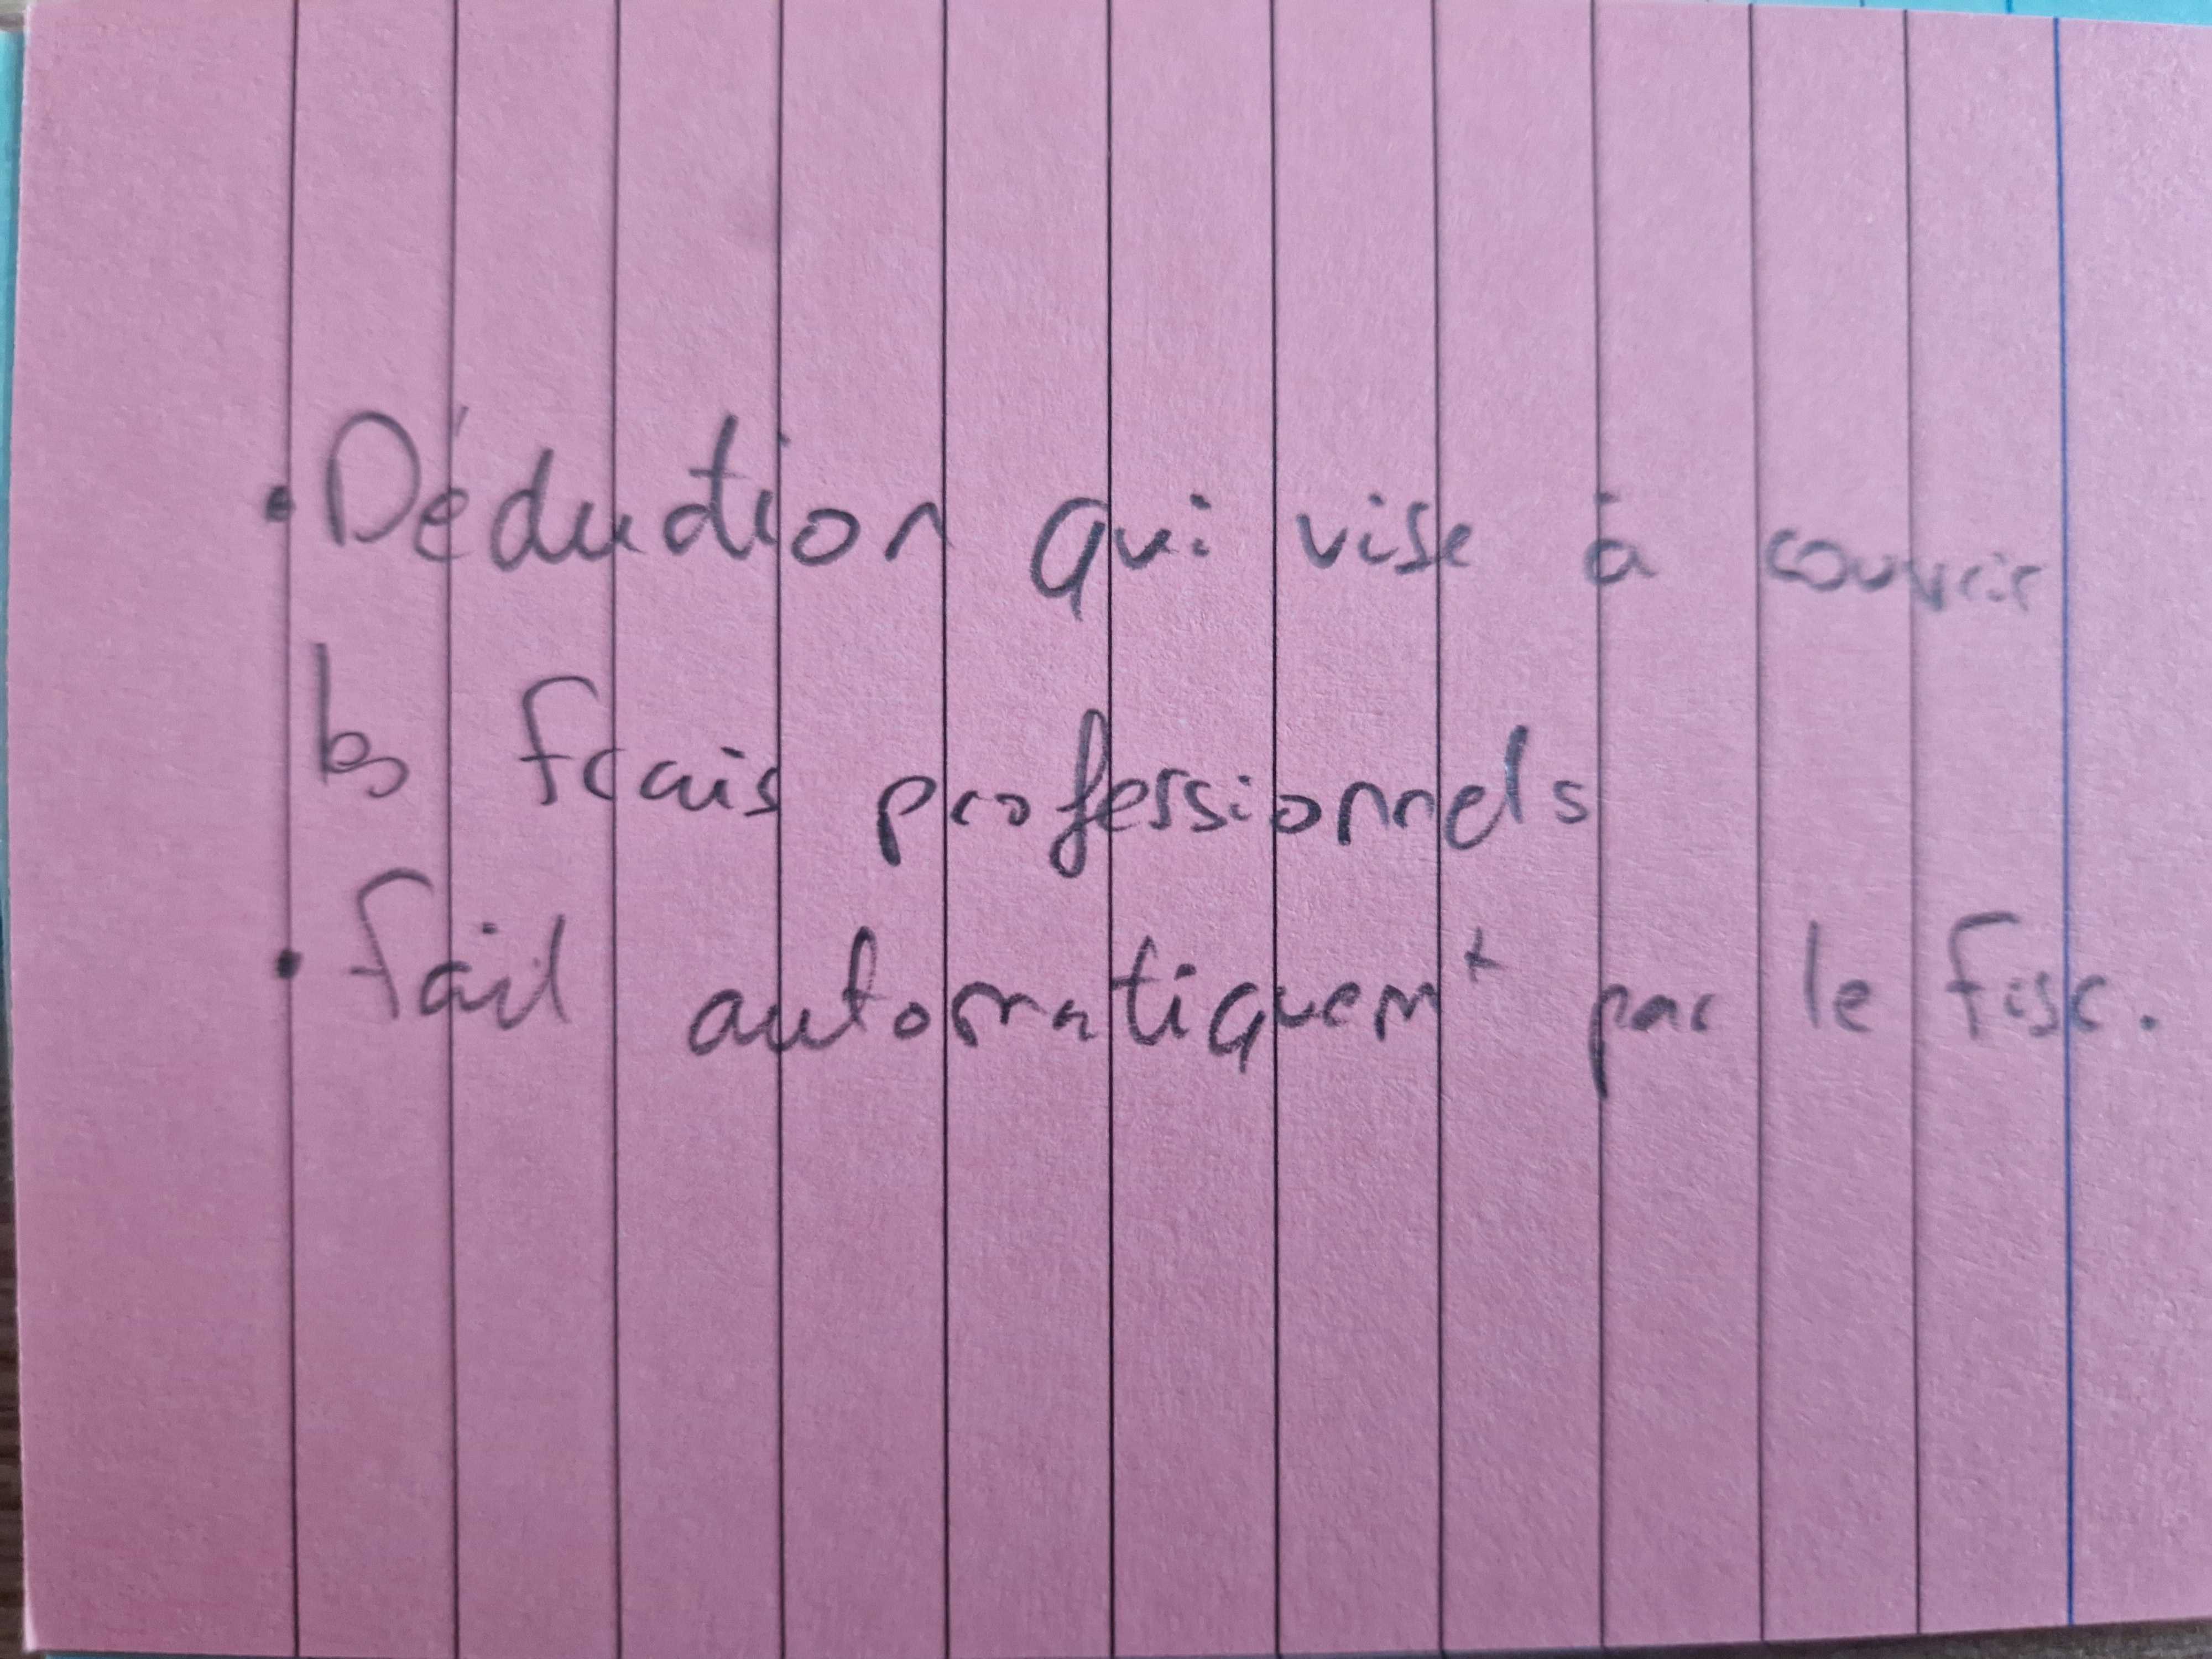 • Déduction qui vise à couvrir
les frais professionnels
• fait automatiquemt par le fisc.